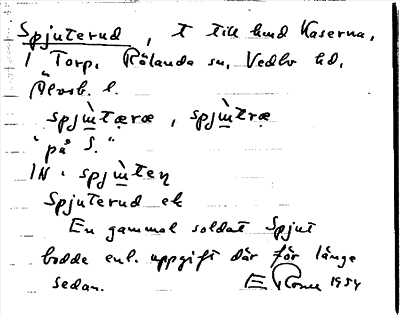 Spjuterud, t till lund Kaserna,
1 Torp, Rölanda sn, Vedbo hd,
Älvsb. l.
spjɯ̀tæræ, spjɯ̀træ
"på S."
IN. spjɯ̀teɳ
Spjuterud ek
En gammal soldat Spjut
bodde enl. uppgift där för länge
sedan. E 1954